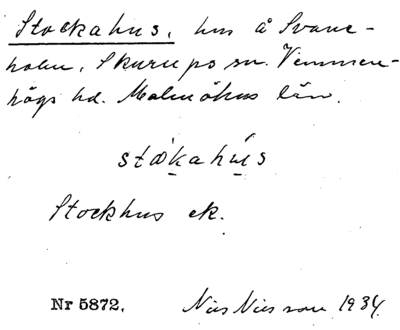 Stockahus, hus å Svane-
holm, Skurups sn. Vemmen-
högs hd. Malmöhus län.
ståkahús
Stockhus ek.
Nr 5872. Nils Nilsson 1934.